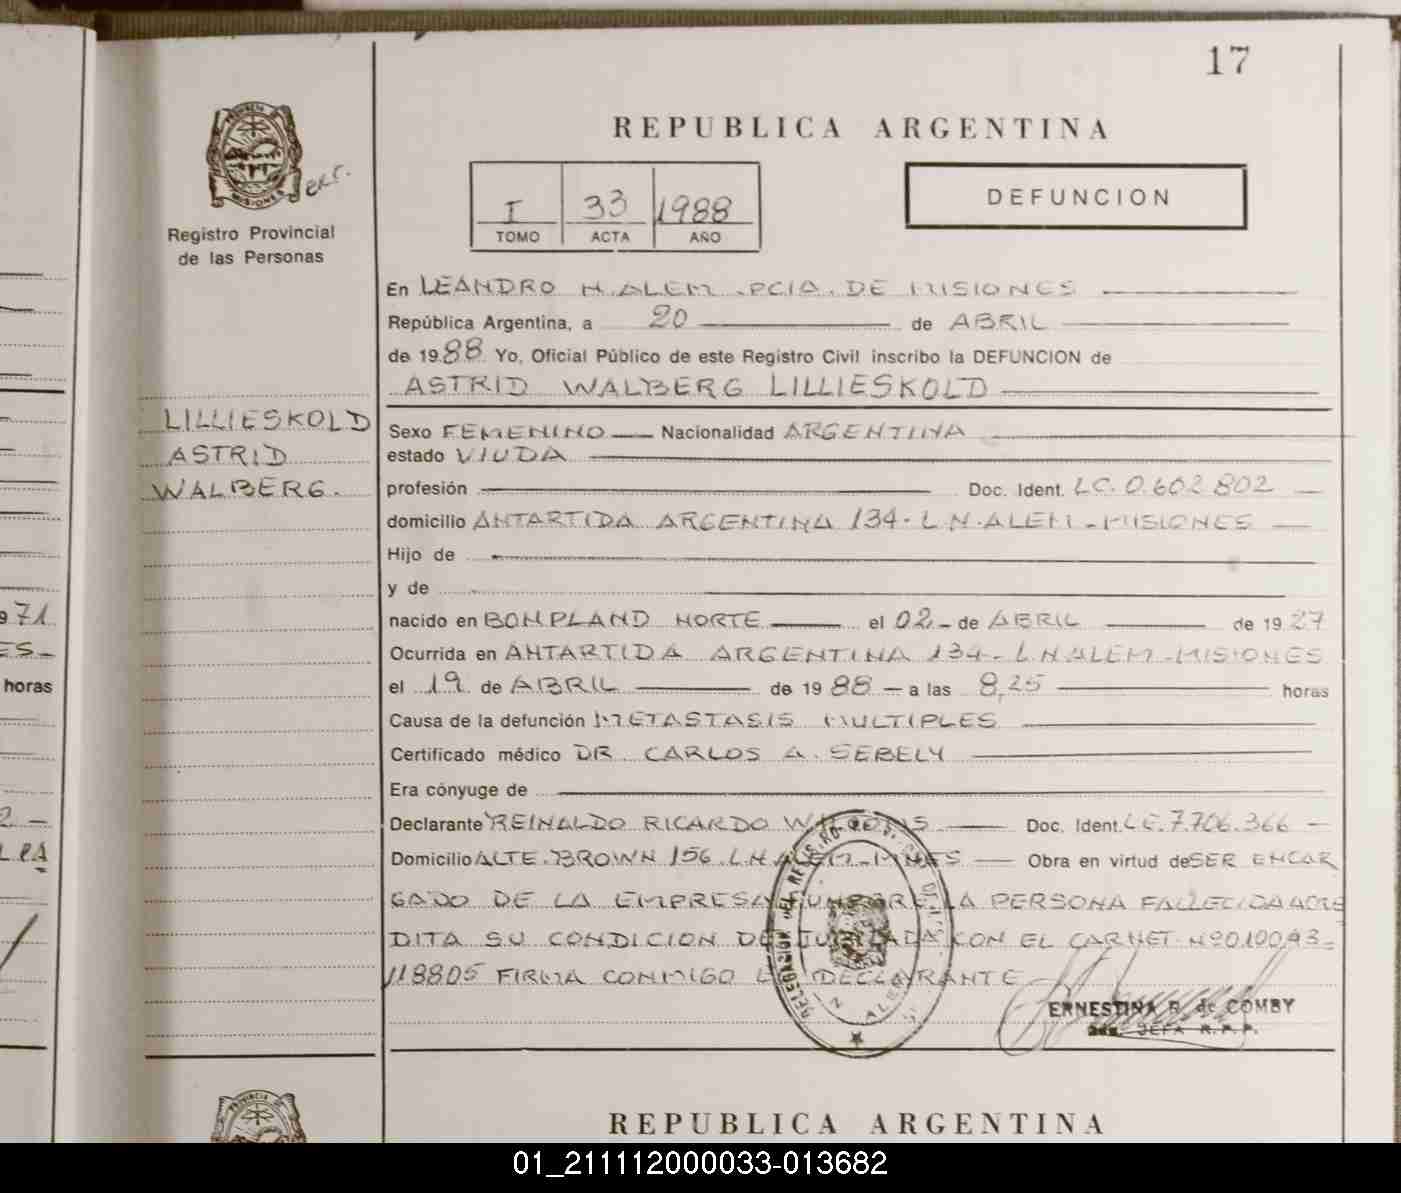 17
PROVINCIA DE
MISIONES
Registro Provincial
de las Personas
REPUBLICA ARGENTINA
I 33 1988
TOMO ACTA AÑO
DEFUNCION
En LEANDRO N. ALEM - PCIA. DE MISIONES
República Argentina, a 20 de ABRIL
de 1988 Yo, Oficial Público de este Registro Civil inscribo la DEFUNCION de
ASTRID WALBERG LILLIESKOLD
LILLIESKOLD
ASTRID
WALBERG.
Sexo FEMENINO Nacionalidad ARGENTINA
estado VIUDA
profesión Doc. Ident. LC. 0.602.802
domicilio ANTARTIDA ARGENTINA 134 - L.N. ALEM - MISIONES
Hijo de
y de
nacido en BONPLAND NORTE el 02 - de ABRIL de 1927
Ocurrida en ANTARTIDA ARGENTINA 134 - L.N ALEM - MISIONES
el 19 de ABRIL de 1988 - a las 8,25 horas
Causa de la defunción METASTASIS MULTIPLES
Certificado médico DR. CARLOS A. SEBELY
Era cónyuge de
Declarante REINALDO RICARDO Doc. Ident. LE. 7.706.366 -
Domicilio ALTE. BROWN 156. L.N. ALEM - MNES Obra en virtud de SER ENCAR
GADO DE LA EMPRESA FUNEBRE LA PERSONA FALLECIDA ACRE
DITA SU CONDICION DE JUBILADA CON EL CARNET Nº 0.100.93-
118805 FIRMA CONMIGO EL DECLARANTE
DELEGACION DEL REGISTRO
ALEM
ERNESTINA R. de COMBY
JEFA R.P.P.
971
ES -
horas
2 -
REPUBLICA ARGENTINA
PROVINCIA DE
01_211112000033-013682